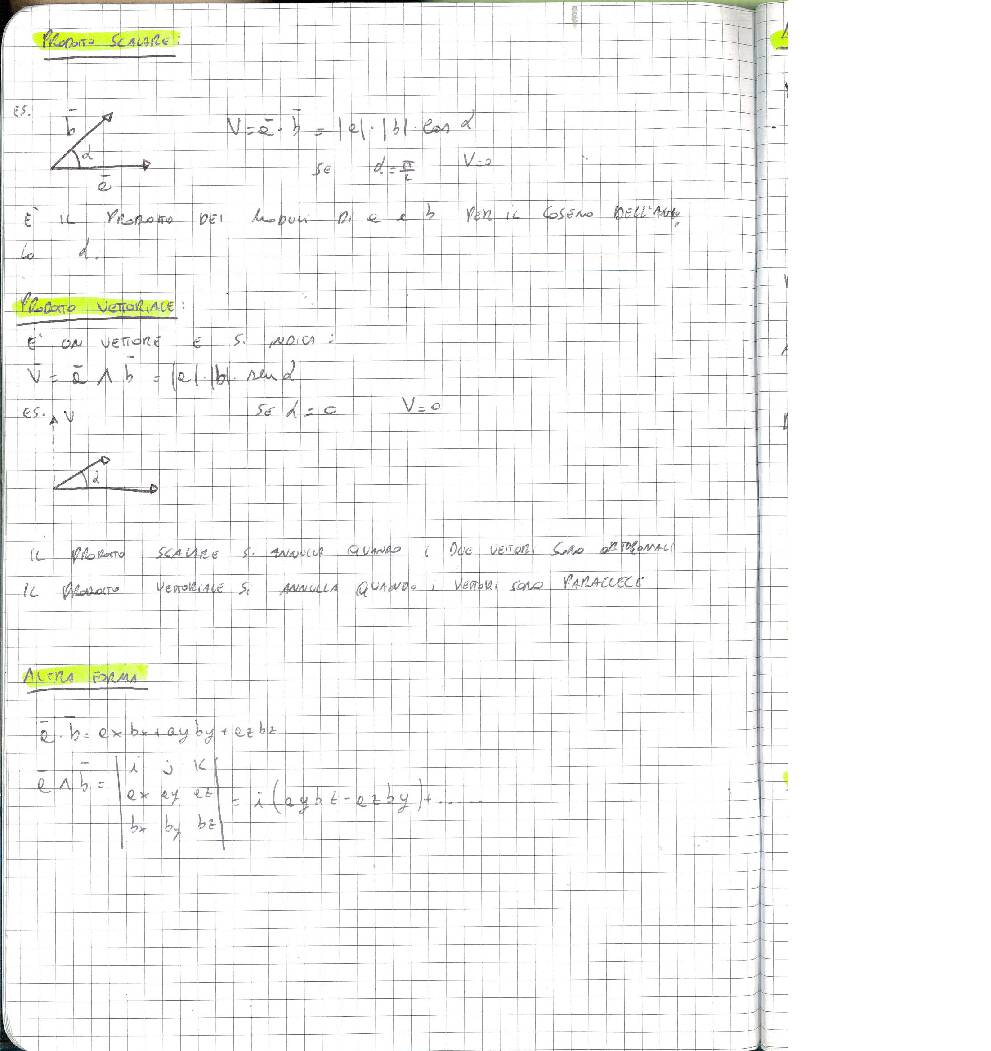 PRODOTTO SCALARE:
ES.
b̄
α
ā
V = ā · b̄ = |a| · |b| · cos α
SE α = π/2 V=0
È IL PRODOTTO DEI MODULI DI a e b PER IL COSENO DELL'ANGO
LO α.
PRODOTTO VETTORIALE:
E' UN VETTORE E SI INDICA:
V̄ = ā Λ b̄ = |a| · |b| · sen α
ES. V
SE α = 0 V=0
α
IL PRODOTTO SCALARE SI ANNULLA QUANDO i DUE VETTORI SONO ORTOGONALI
IL PRODOTTO VETTORIALE SI ANNULLA QUANDO i VETTORI SONO PARALLELI
ALTRA FORMA
ā · b̄ = ax bx + ay by + az bz
ā Λ b̄ = | i j k |
| ax ay az | = i (ay bz - az by) + ......
| bx by bz |